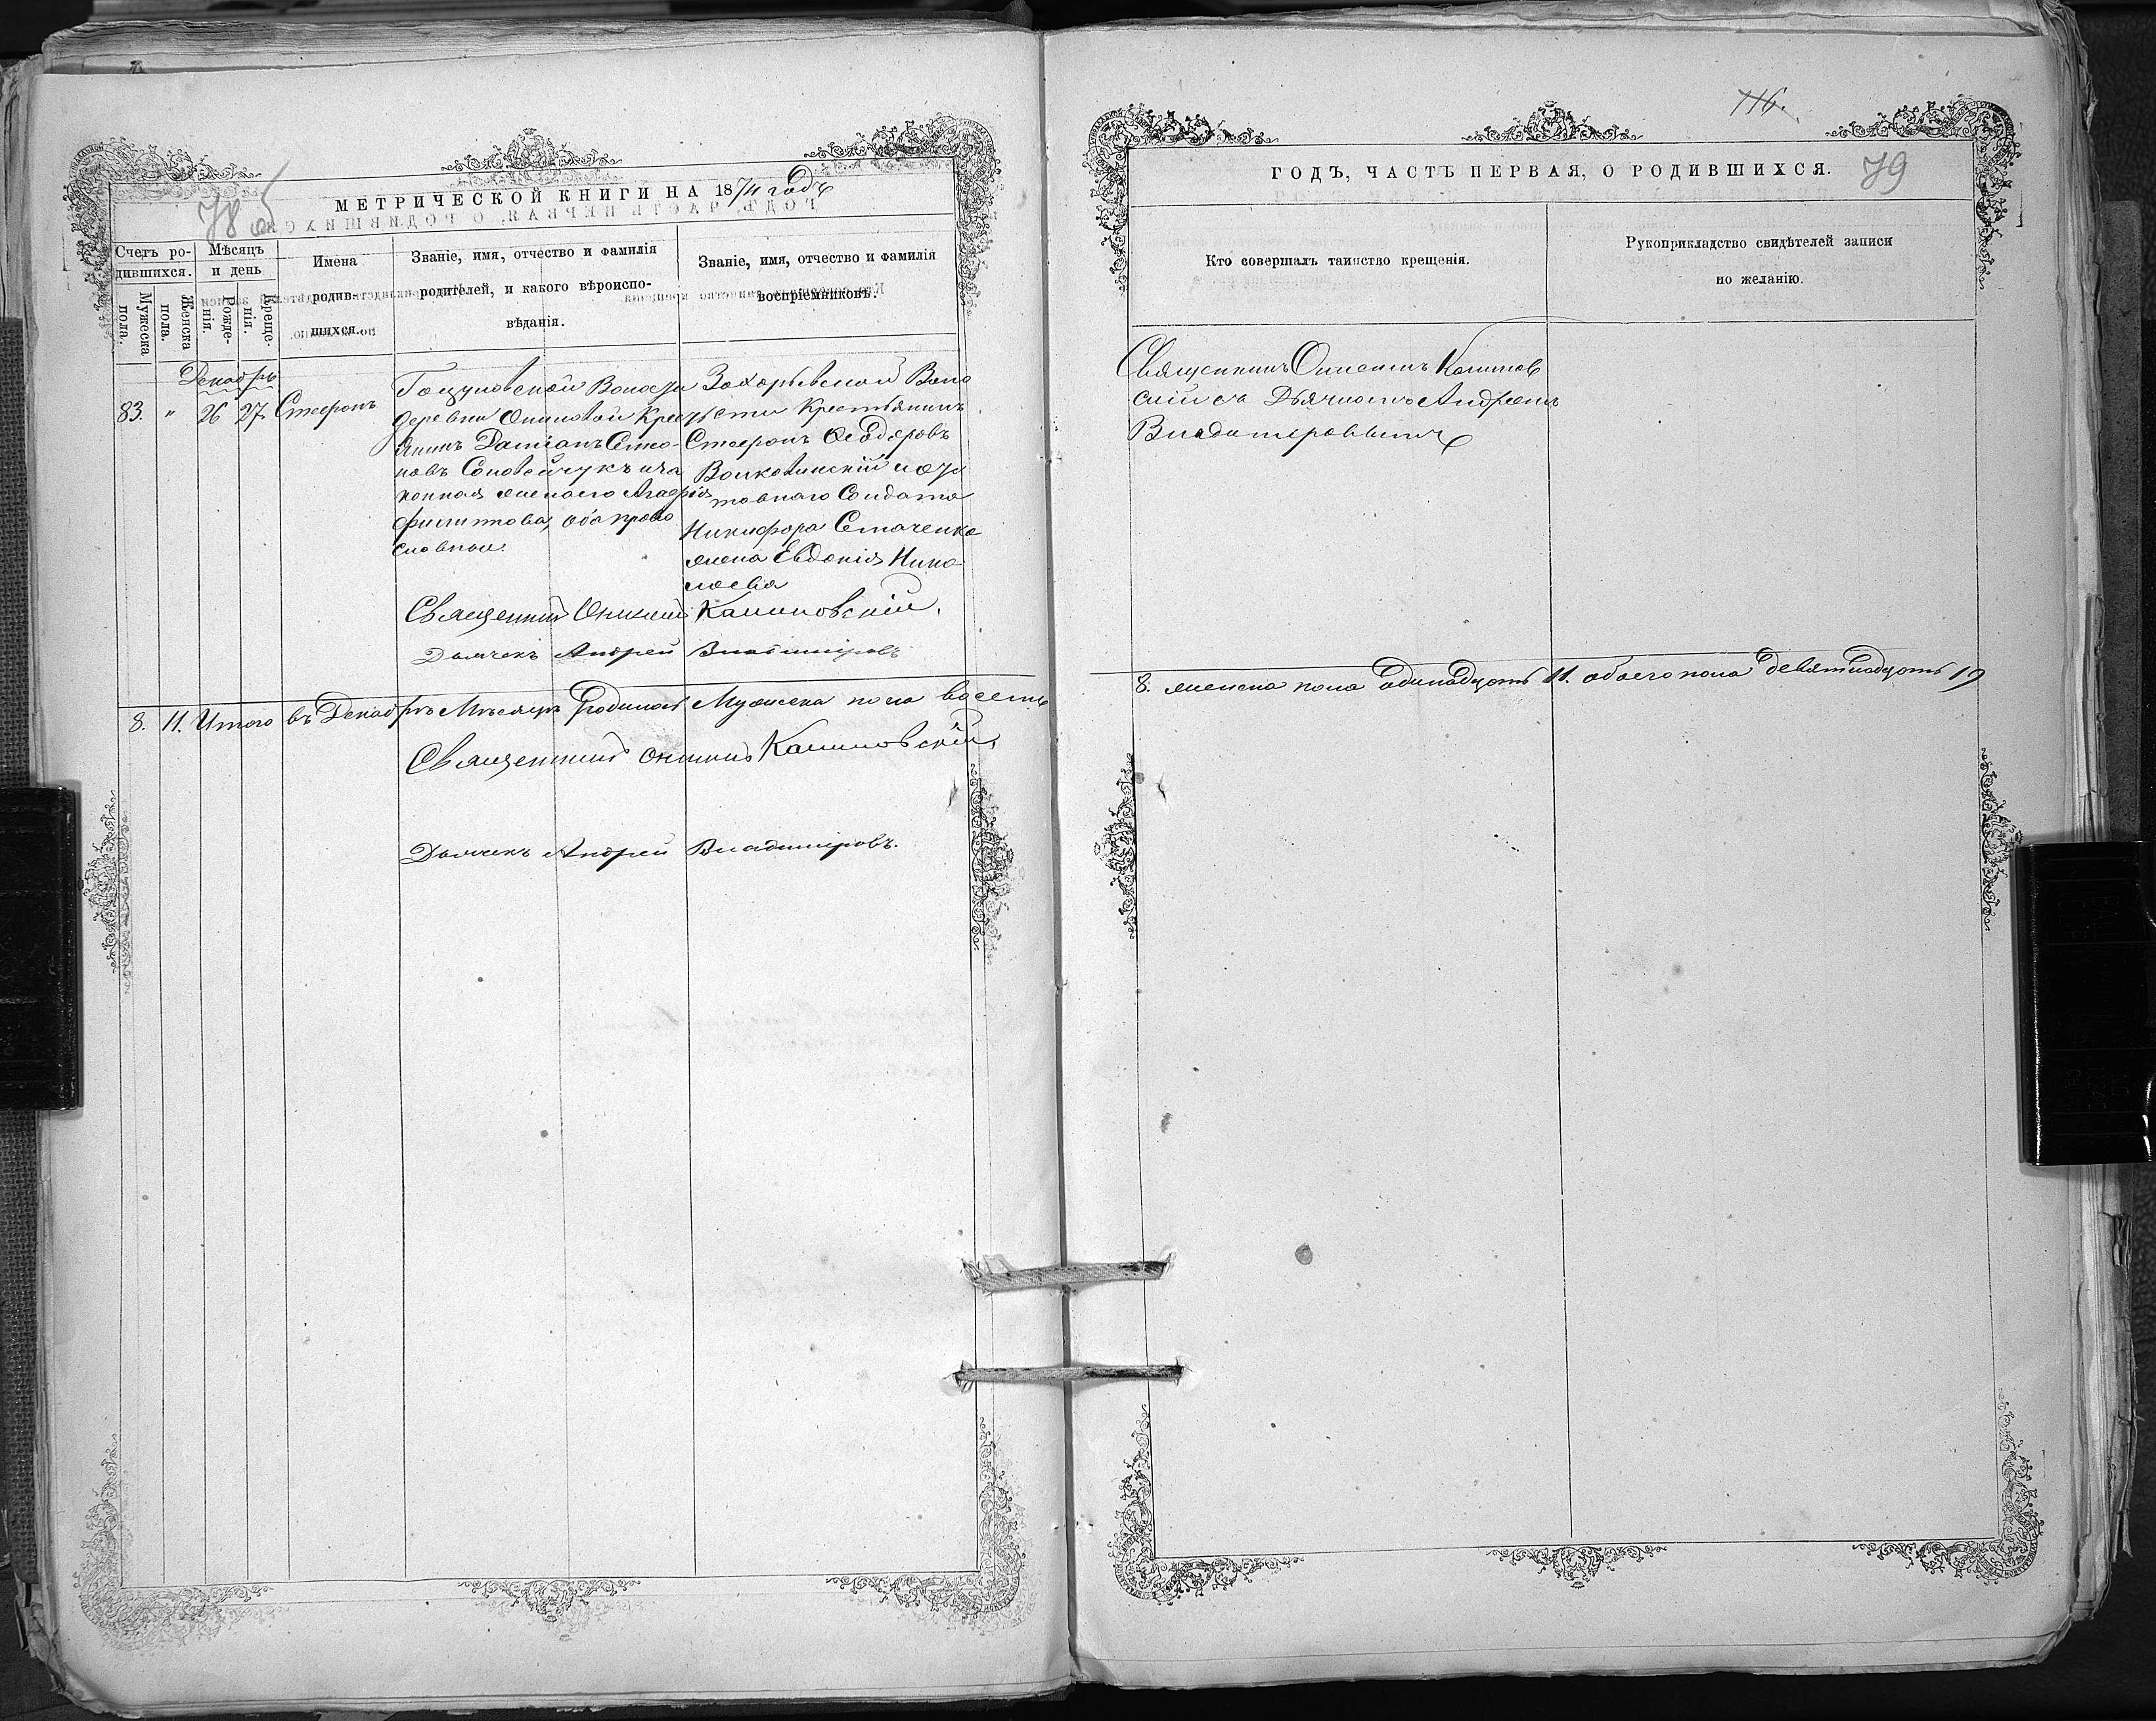 78 об
МЕТРИЧЕСКОЙ КНИГИ НА 1874 годъ
Счетъ ро-
дившихся.
Мужеска
пола.
Женска
пола.
Мѣсяцъ
и день
Рожде-
нія.
Креще-
нія.
Имена
родив-
шихся.
Званіе, имя, отчество и фамилія
родителей, и какого вѣроиспо-
вѣданія.
Званіе, имя, отчество и фамилія
воспріемниковъ.
Декабрь
83. " 26 27. Стефонъ
деревни Кресть
янинъ Даміанъ Симо-
новъ Соловейчукъ и за
конная жена его Агафія
Филипова, оба право
славные.
Захарьевской Воло
сти Крестьянинъ
Стефонъ Ѳеодоровъ
Волковинскій и от
ставнаго Солдата
Никифора Стаченка
жена Евдокія Нико-
лаева
Священникъ Оникій Калиновскій.
Дьячекъ Андрей Владиміровъ
8. 11. Итого въ Декабрѣ Мѣсяцѣ родилось Мужеска пола восемь
Священникъ Оникій Калиновскій,
Дьячекъ Андрей Владиміровъ.
116.
ГОДЪ, ЧАСТЬ ПЕРВАЯ, О РОДИВШИХСЯ. 79
Кто совершалъ таинство крещенія.
Рукоприкладство свидѣтелей записи
по желанію.
Священникъ Оникій Калинов
скій съ Дьячкомъ Андреемъ
Владиміровымъ
8. женска пола одинадцать 11. обоего пола девятнадцать 19